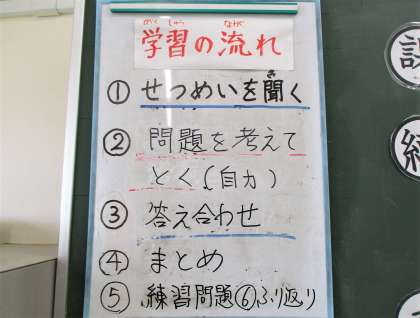 がく しゅう なが
学習の流れ
き
①せつめいを聞く
②問題を考えて
とく(自力)
③答え合わせ
④まとめ
⑤練習問題⑥ふり返り